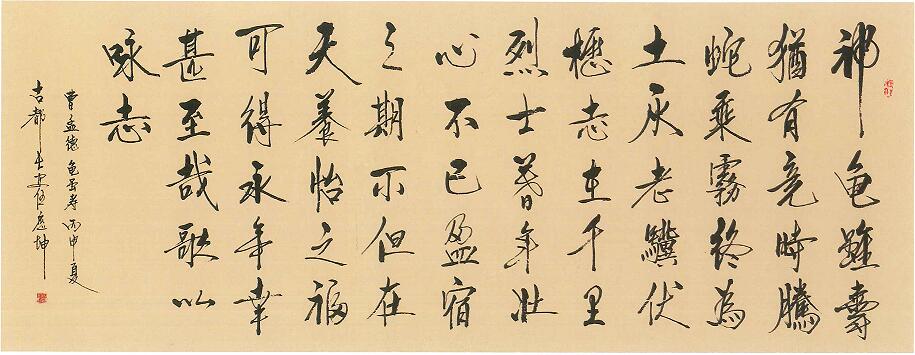 神龟雖壽
猶有竟時騰
蛇乘霧終為
土灰老驥伏
櫪志在千里
烈士暮年壯
心不已盈宿
之期不但在
天養怡之福
可得永年幸
甚至哉歌以
咏志
曹孟德龟虽寿丙申夏
古都长安坤